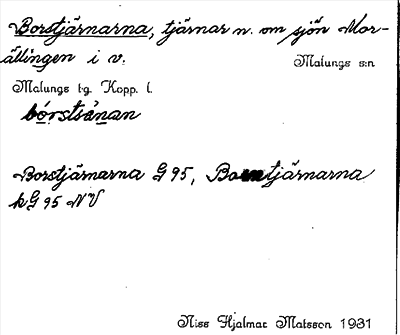 Borstjärnarna, tjärnar n. om sjön Mor-
ällingen i v. Malungs sn
Malungs tg. Kopp. l.
bórstsånan
Borstjärnarna G 95, tjärnarna
k G 95 NV
Niss Hjalmar Matsson 1931